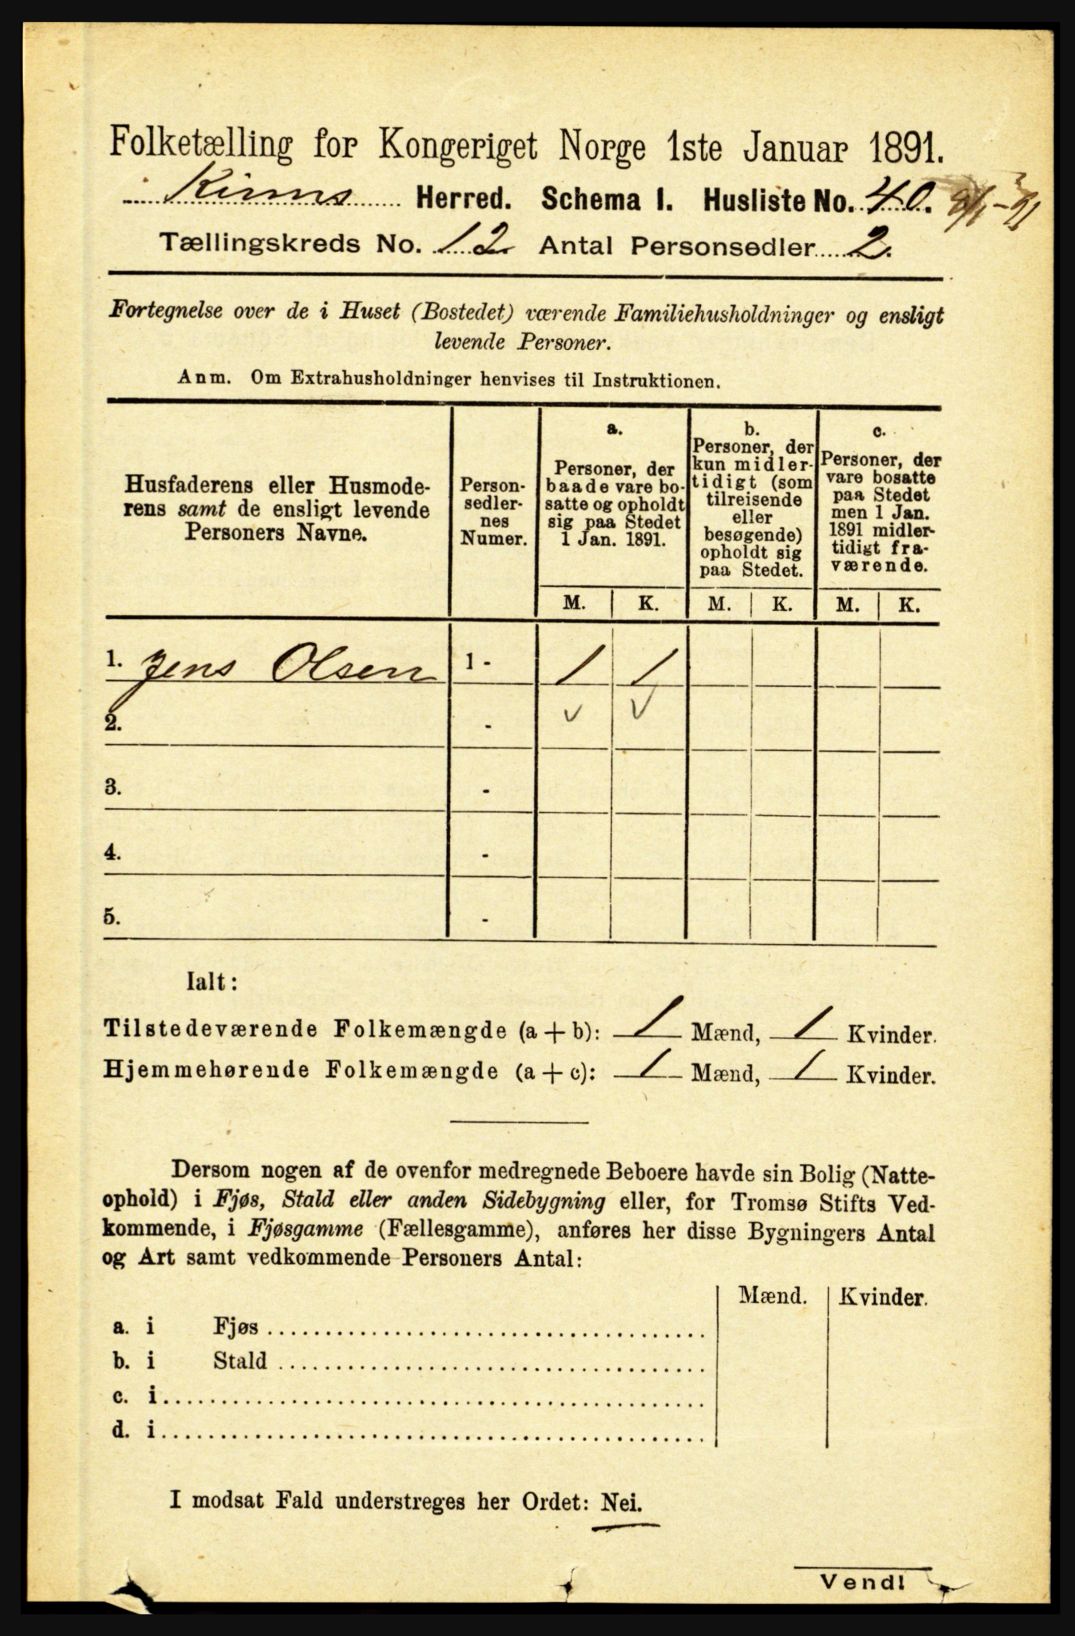 Folketælling for Kongeriget Norge 1ste Januar 1891.
Kinns Herred. Schema I. Husliste No. 40.
Tællingskreds No. 12 Antal Personsedler 2.
Fortegnelse over de i Huset (Bostedet) værende Familiehusholdninger og ensligt
levende Personer.
Anm. Om Extrahusholdninger henvises til Instruktionen.
Husfaderens eller Husmode-
rens samt de ensligt levende
Personers Navne.
Person-
sedler-
nes
Numer.
a.
Personer, der
baade vare bo-
satte og opholdt
sig paa Stedet
1 Jan. 1891.
b.
Personer, der
kun midler-
tidigt (som
tilreisende
eller
besøgende)
opholdt sig
paa Stedet.
c.
Personer, der
vare bosatte
paa Stedet
men 1 Jan.
1891 midler-
tidigt fra-
værende.
M. K. M. K. M. K.
1. Jens Olsen 1 - 1 1
2. - v v
3. -
4. -
5. -
Ialt:
Tilstedeværende Folkemængde (a + b): 1 Mænd, 1 Kvinder.
Hjemmehørende Folkemængde (a + c): 1 Mænd, 1 Kvinder.
Dersom nogen af de ovenfor medregnede Beboere havde sin Bolig (Natte-
ophold) i Fjøs, Stald eller anden Sidebygning eller, for Tromsø Stifts Ved-
kommende, i Fjøsgamme (Fællesgamme), anføres her disse Bygningers Antal
og Art samt vedkommende Personers Antal:
Mænd. Kvinder.
a. i Fjøs
b. i Stald
c. i
d. i
I modsat Fald understreges her Ordet: Nei.
Vend!